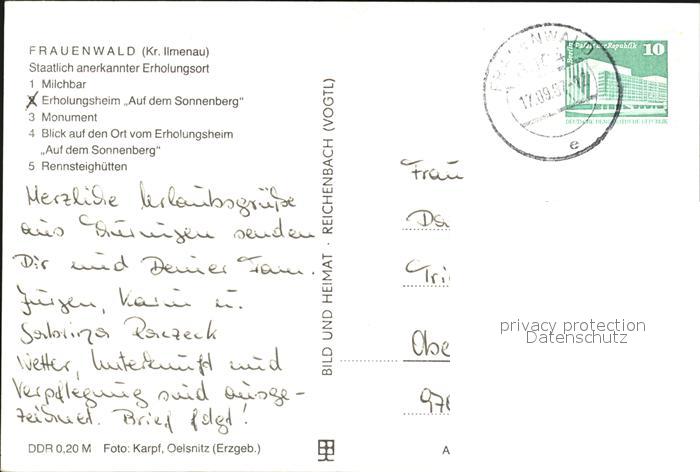 FRAUENWALD (Kr. Ilmenau)
Staatlich anerkannter Erholungsort
1 Milchbar
2 Erholungsheim „Auf dem Sonnenberg"
3 Monument
4 Blick auf den Ort vom Erholungsheim
„Auf dem Sonnenberg"
5 Rennsteighütten
Herzliche Urlaubsgrüße
aus Thüringen senden
Dir und Deiner Fam.
Jürgen, Karin u.
Sabrina
Wetter, Unterkunft und
Verpflegung sind ausge-
zeichnet. Brief folgt!
DDR 0,20 M Foto: Karpf, Oelsnitz (Erzgeb.)
BILD UND HEIMAT · REICHENBACH (VOGTL)
FRAUENWALD
17.09.
e
Berlin, Palast der Republik
10
DEUTSCHE DEMOKRATISCHE REPUBLIK
Frau
Da
Tri
Obe
976
A
privacy protection
Datenschutz